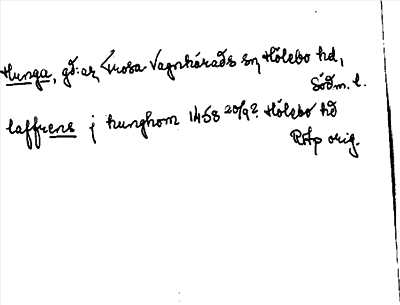 Hunga, gd:ar, Trosa Vagnhärads sn, Hölebo hd,
Södm. l.
laffrens j hunghom 1458 20/9? Hölebo hd
RAp orig.